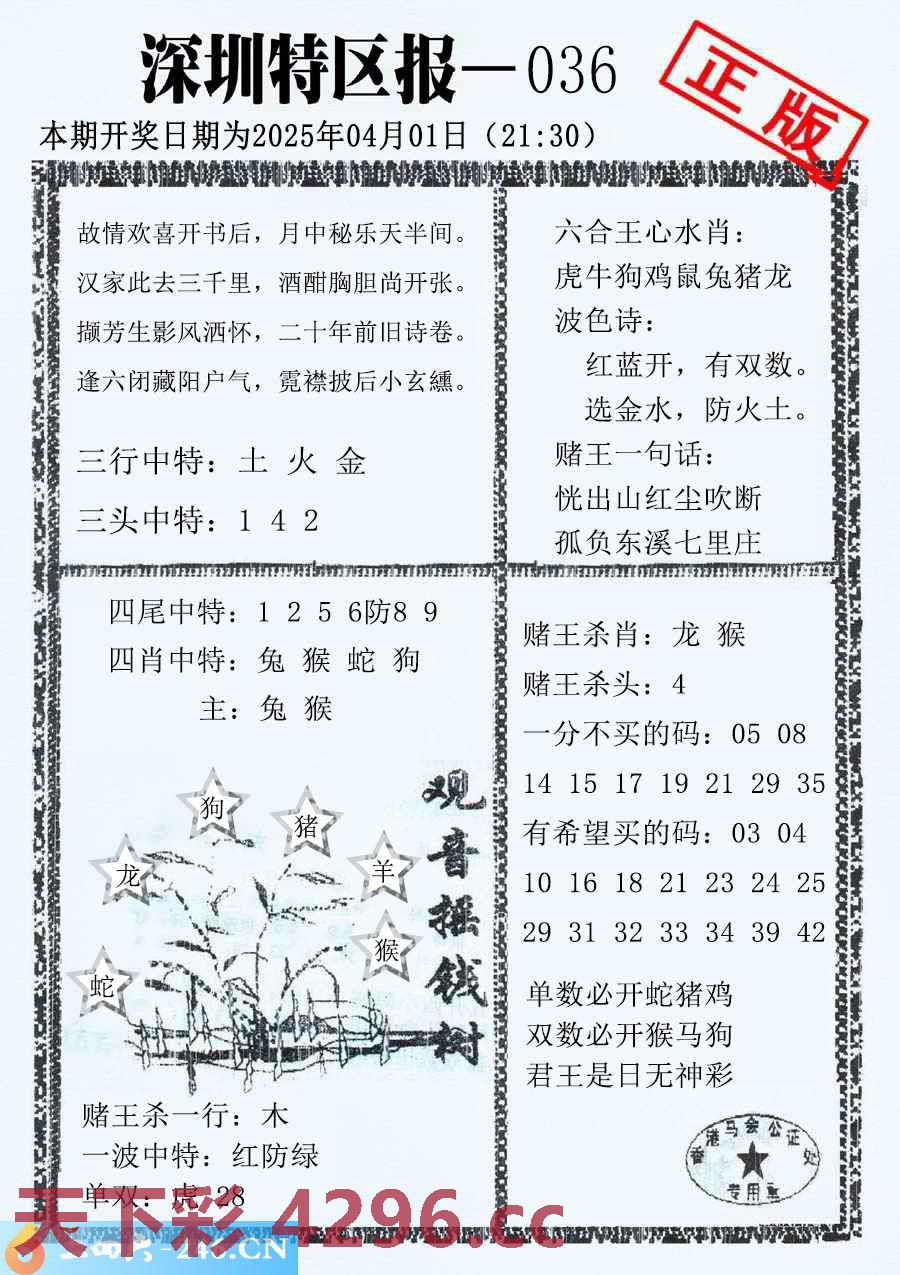 深圳特区报—036
正版
本期开奖日期为2025年04月01日（21:30）
故情欢喜开书后，月中秘乐天半间。
汉家此去三千里，酒酣胸胆尚开张。
撷芳生影风洒怀，二十年前旧诗卷。
逢六闭藏阳户气，霓襟披后小玄纁。
三行中特：土 火 金
三头中特：1 4 2
六合王心水肖：
虎牛狗鸡鼠兔猪龙
波色诗：
红蓝开，有双数。
选金水，防火土。
赌王一句话：
恍出山红尘吹断
孤负东溪七里庄
四尾中特：1 2 5 6防8 9
四肖中特：兔 猴 蛇 狗
主：兔 猴
狗
猪
龙
羊
猴
蛇
观音摇钱树
赌王杀一行：木
一波中特：红防绿
单双：虎 28
赌王杀肖：龙 猴
赌王杀头：4
一分不买的码：05 08
14 15 17 19 21 29 35
有希望买的码：03 04
10 16 18 21 23 24 25
29 31 32 33 34 39 42
单数必开蛇猪鸡
双数必开猴马狗
君王是日无神彩
香港马会公证处
专用章
天下彩 4296.cc
246.CN